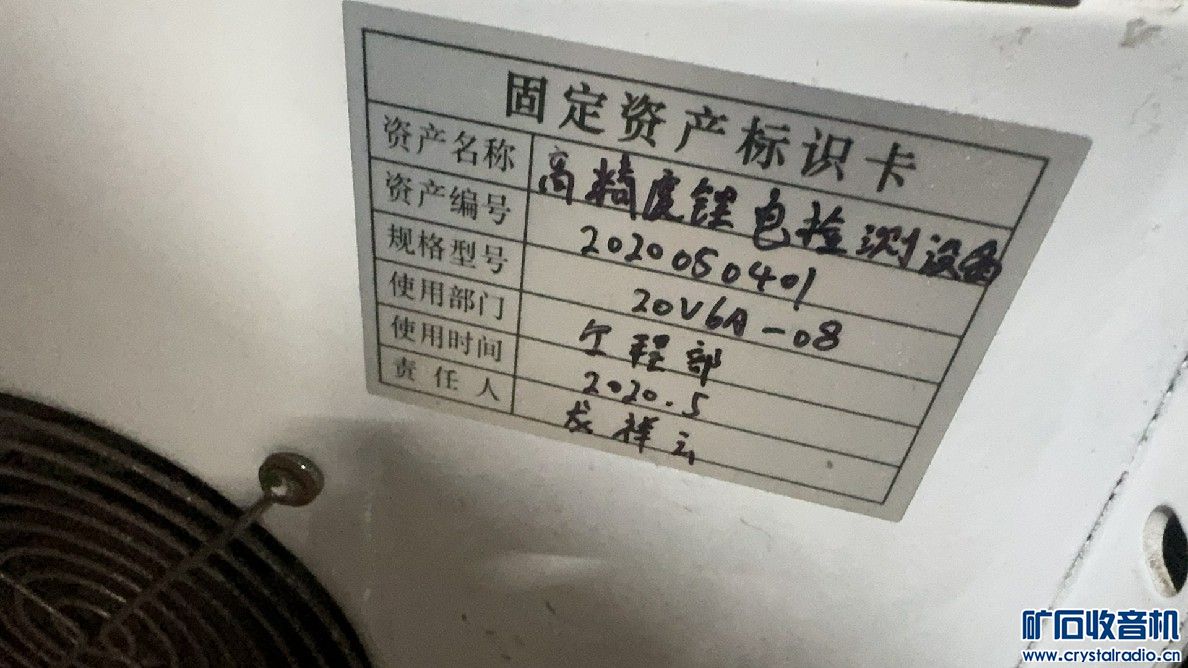 固定资产标识卡
资产名称 高精度锂电检测设备
资产编号 2020050401
规格型号 20V6A-08
使用部门 工程部
使用时间 2020.5
责任人 祥云
矿石收音机
www.crystalradio.cn